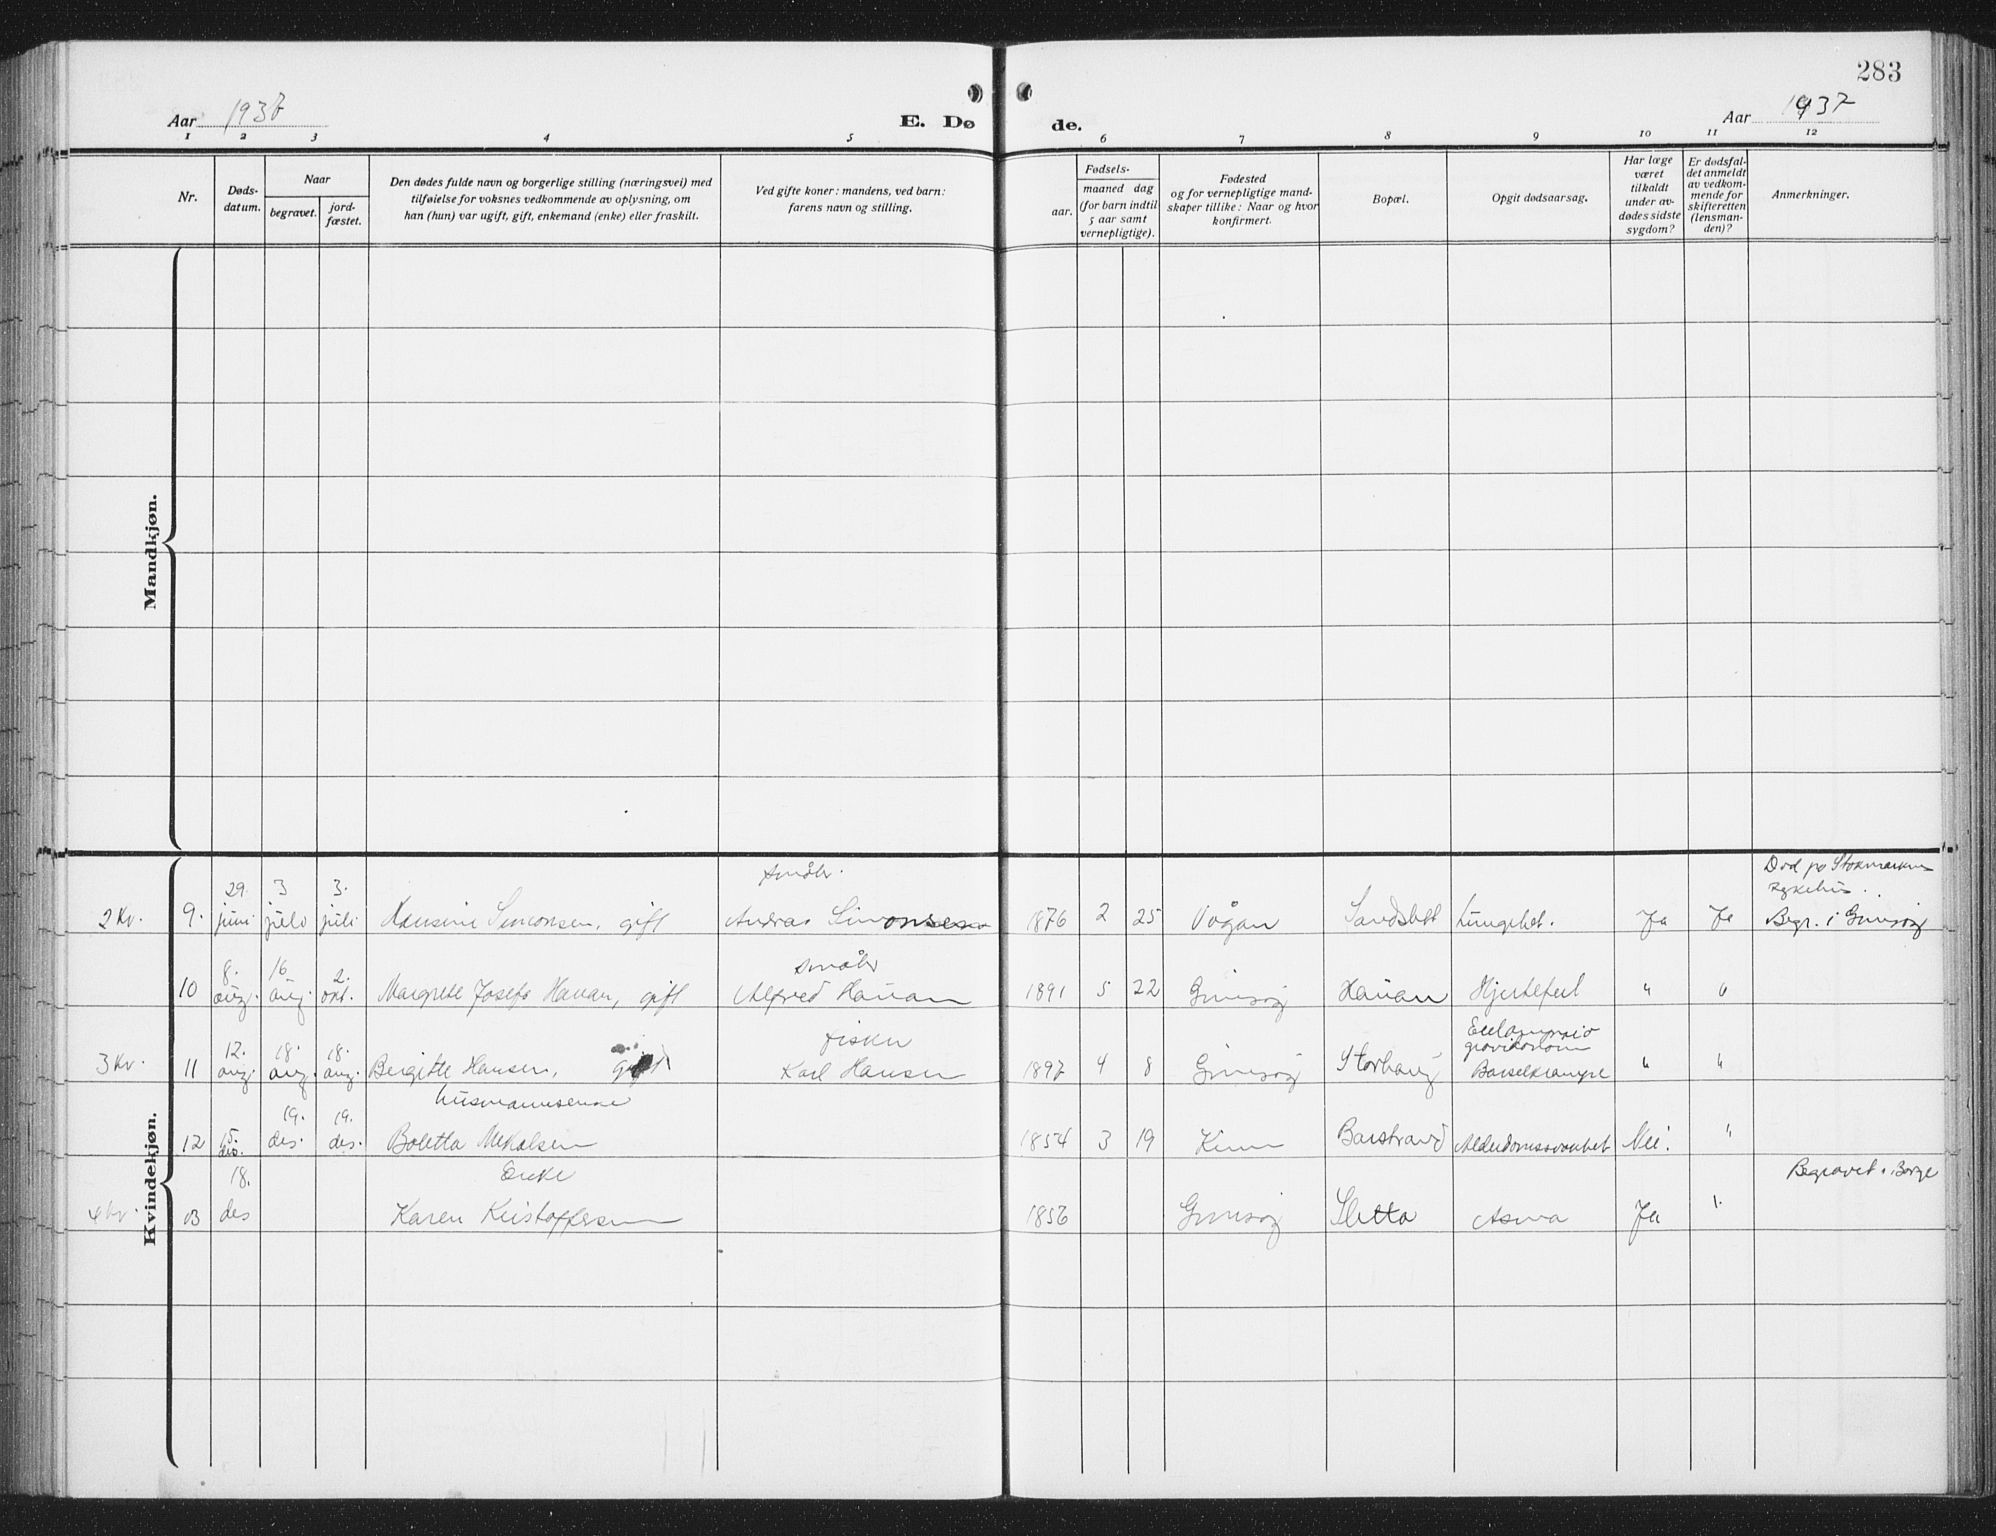 283
Aar 1937
E. Dø
de.
Aar 1937
1 2 3 4 5 6 7 8 9 10 11 12
Nr.
Døds-
datum.
Naar
begravet.
jord-
fæstet.
Den dødes fulde navn og borgerlige stilling (næringsvei) med
tilføielse for voksnes vedkommende av oplysning, om
han (hun) var ugift, gift, enkemand (enke) eller fraskilt.
Ved gifte koner: mandens, ved barn:
farens navn og stilling.
Fødsels-
aar.
maaned dag
(for barn indtil
5 aar samt
vernepligtige).
Fødested
og for vernepligtige mand-
skaper tillike: Naar og hvor
konfirmert.
Bopæl.
Opgit dødsaarsag.
Har læge
været
tilkaldt
under av-
dødes sidste
sygdom?
Er dødsfal-
det anmeldt
av vedkom-
mende for
skifteretten
(lensman-
den)?
Anmerkninger.
Mandkjøn.
Kvindekjøn.
småbr. Død på Stokmarknes
29. 3 3. sykehus.
2 Kv. 9. juni juli juli Hansine Simonsen, gift Andreas Simonsen 1876 2 25 Vågan Sandslett Lungebet. Ja Ja Begr. i Gimsøy
8. 16 2. småbr
10 aug. aug. okt. Margrete Josefa Hauan, gift Alfred Hauan 1891 5 22 Gimsøy Hauan Hjertefeil " "
12. 18. 18. fisker Eclampsia
gravidarum
3 Kv. 11 aug. aug. aug. Birgitte Hansen, gift Karl Hansen 1897 4 8 Gimsøy Storhaug Barselkrampe " "
19. 19. husmannsenke
12 15. des. des. des. Boletta Mikalsen 1854 3 19 Kinn Barstrand Alderdomssvakhet Nei. "
18. Enke Begravet i Borge
4 kv. 13 des Karen Kristoffersen 1856 Gimsøy Sletta Asma Ja "